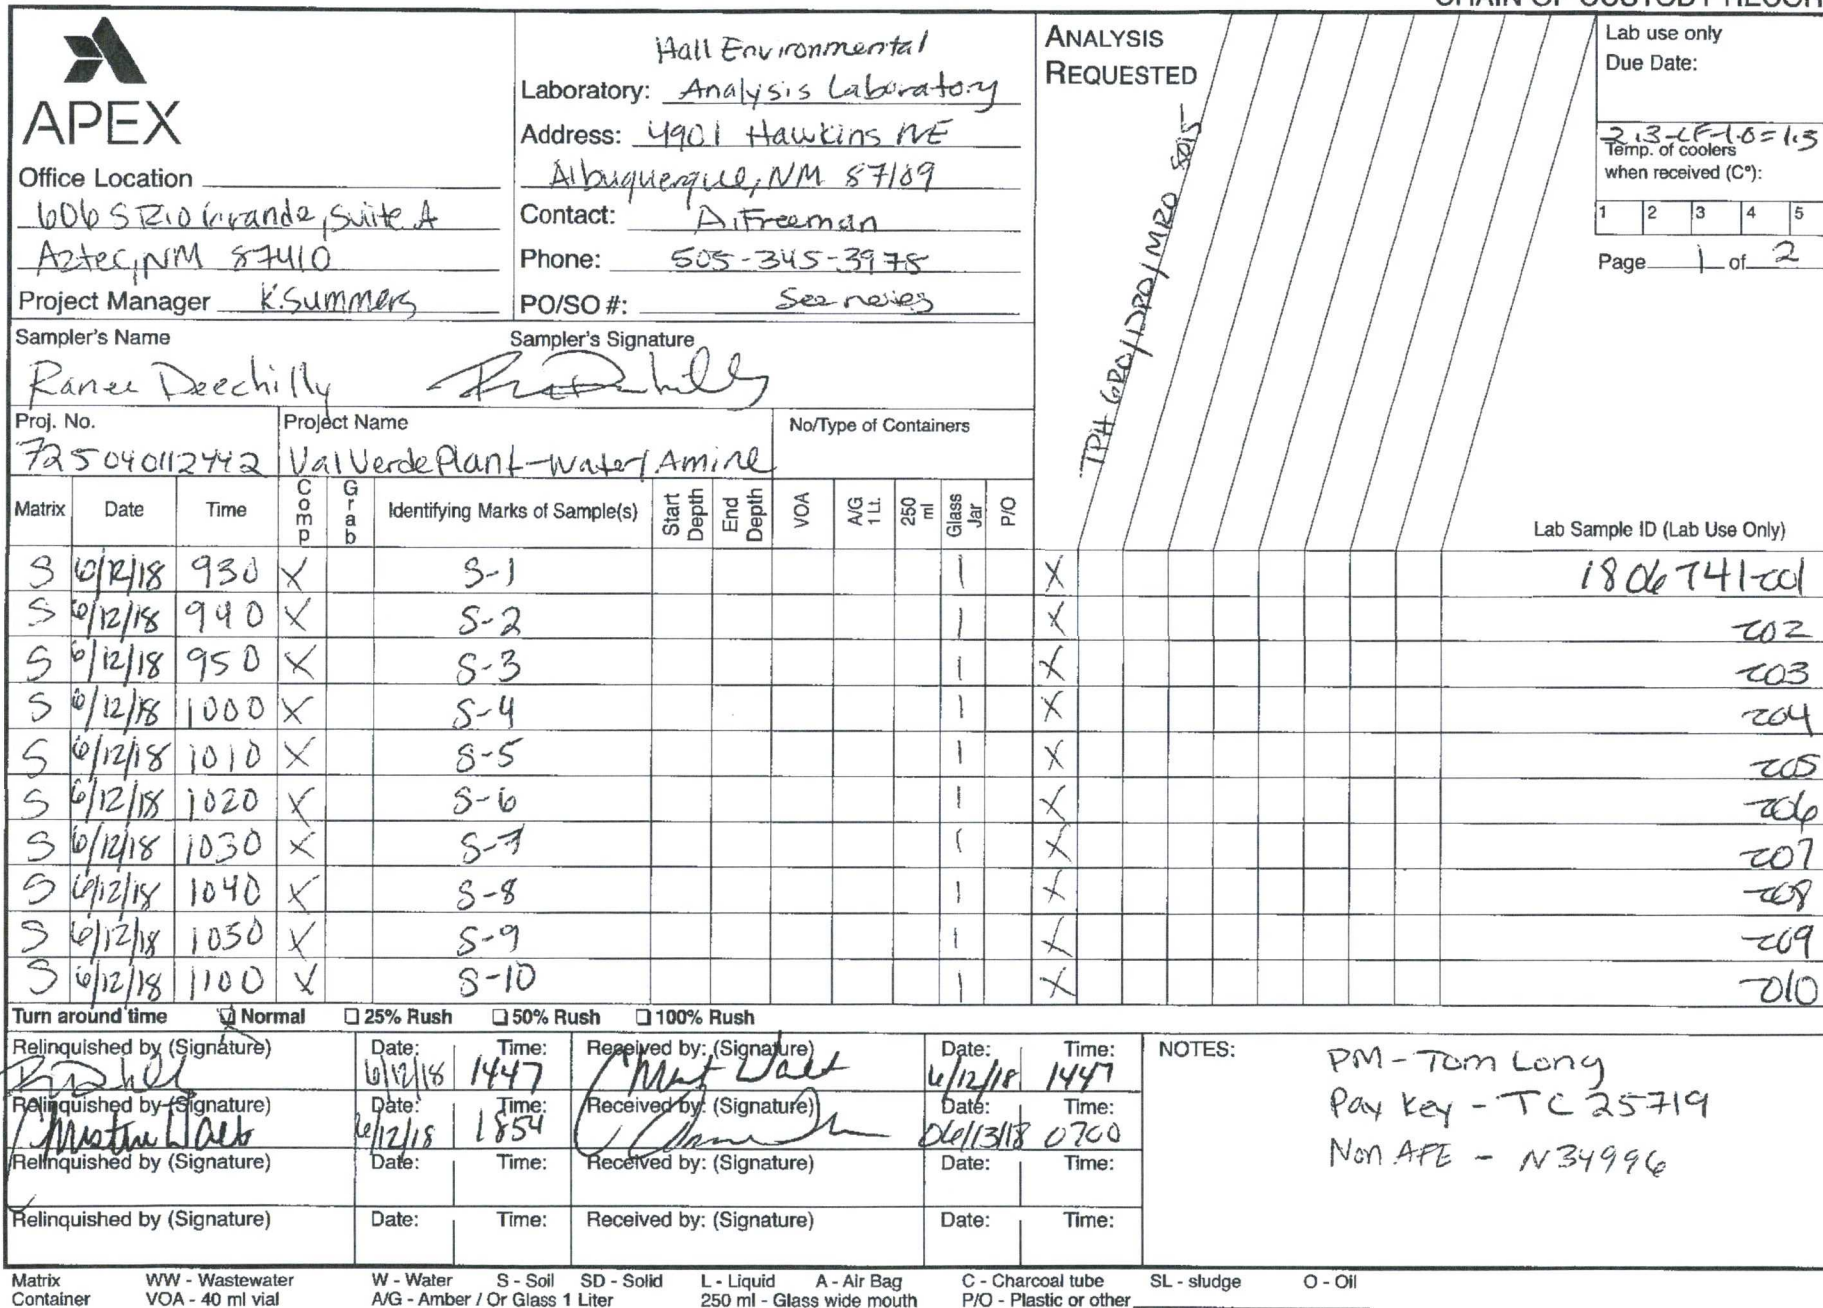 CHAIN OF CUSTODY RECOR
APEX
Office Location
606 S Rio Grande, Suite A
Aztec, NM 87410
Project Manager K. Summers
Hall Environmental
Laboratory: Analysis Laboratory
Address: 4901 Hawkins NE
Albuquerque, NM 87109
Contact: A. Freeman
Phone: 505-345-3975
PO/SO #: See notes
Sampler's Name
Ranee Deechilly
Sampler's Signature
ANALYSIS
REQUESTED
TPH GRO/DRO/MRO 8015
Lab use only
Due Date:
2.3-CF-1.0=1.3
Temp. of coolers
when received (C°):
1 2 3 4 5
Page 1 of 2
Proj. No.
725040112442
Project Name
Val Verde Plant-Water/Amine
No/Type of Containers
Matrix Date Time Comp Grab Identifying Marks of Sample(s) Start Depth End Depth VOA A/G 1 Lt. 250 ml Glass Jar P/O Lab Sample ID (Lab Use Only)
S 6/12/18 930 X S-1 1 X 1806741-001
S 6/12/18 940 X S-2 1 X -002
S 6/12/18 950 X S-3 1 X -003
S 6/12/18 1000 X S-4 1 X -004
S 6/12/18 1010 X S-5 1 X -005
S 6/12/18 1020 X S-6 1 X -006
S 6/12/18 1030 X S-7 1 X -007
S 6/12/18 1040 X S-8 1 X -008
S 6/12/18 1050 X S-9 1 X -009
S 6/12/18 1100 X S-10 1 X -010
Turn around time ☑ Normal ☐ 25% Rush ☐ 50% Rush ☐ 100% Rush
Relinquished by (Signature) Date: 6/12/18 Time: 1447 Received by: (Signature) Date: 6/12/18 Time: 1447
Relinquished by (Signature) Date: 6/12/18 Time: 1854 Received by: (Signature) Date: 06/13/18 Time: 0700
Relinquished by (Signature) Date: Time: Received by: (Signature) Date: Time:
Relinquished by (Signature) Date: Time: Received by: (Signature) Date: Time:
NOTES:
PM - Tom Long
Pay Key - TC 25719
Non AFE - N34996
Matrix WW - Wastewater W - Water S - Soil SD - Solid L - Liquid A - Air Bag C - Charcoal tube SL - sludge O - Oil
Container VOA - 40 ml vial A/G - Amber / Or Glass 1 Liter 250 ml - Glass wide mouth P/O - Plastic or other